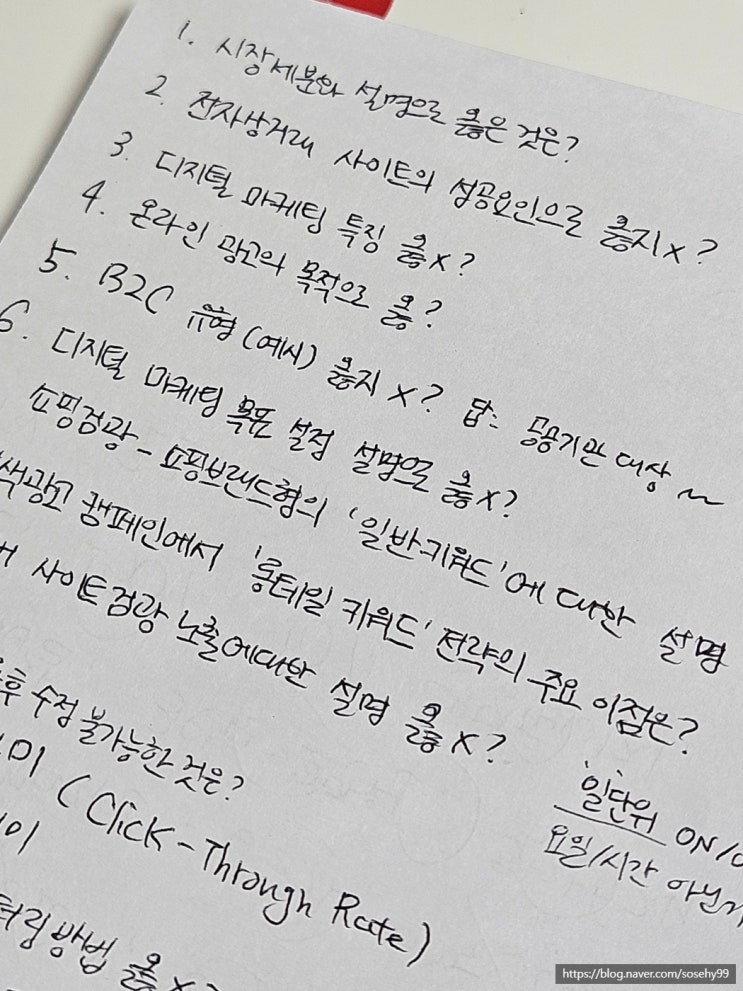 1. 시장세분화 설명으로 옳은 것은?
2. 전자상거래 사이트의 성공요인으로 옳지x?
3. 디지털 마케팅 특징 옳x?
4. 온라인 광고의 목적으로 옳?
5. B2C 유형(예시) 옳지 x? 답: 공공기관 대상~
6. 디지털 마케팅 목표 설정 설명으로 옳x?
쇼핑검광-쇼핑브랜드형의 '일반키워드'에 대한 설명
색광고 캠페인에서 '롱테일 키워드' 전략의 주요 이점은?
사이트검광 노출에대한 설명 옳x?
후 수정 불가능한 것은?
'일단위 ON/
요일/시간 아닌
의미 (Click-Through Rate)
터링방법 옳x?
https://blog.naver.com/sosehy99